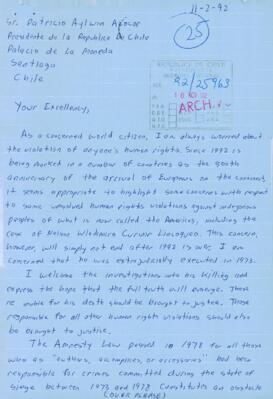 11-2-92
(25)
Sr. Patricio Aylwin Azocar
Presidente de la Republica de Chile
Palacio de La Moneda
Santiago
Chile
92/25963
ARCH.
Your Excellency,
As a concerned world citizen, I am always worried about
the violation of anyone's human rights. Since 1992 is
being marked in a number of countries as the 500th
anniversary of the arrival of Europeans on the continent,
it seems appropriate to highlight some concerns with respect
to some unsolved human rights violations against indigenous
peoples of what is now called the Americas, including the
case of Nelson Wladimiro Curiñir Lincoqueo. This concern,
however, will simply not end after 1992 is over. I am
concerned that he was extrajudicially executed in 1973.
I welcome the investigations into his killing and
express the hope that the full truth will emerge. Those
responsible for his death should be brought to justice. Those
responsible for all other human rights violations should also
be brought to justice.
The Amnesty Law passed in 1978 for all those
who as "authors, accomplices, or accessories" had been
responsible for crimes committed during the state of
siege between 1973 and 1978 constitutes an obstacle
(OVER PLEASE)